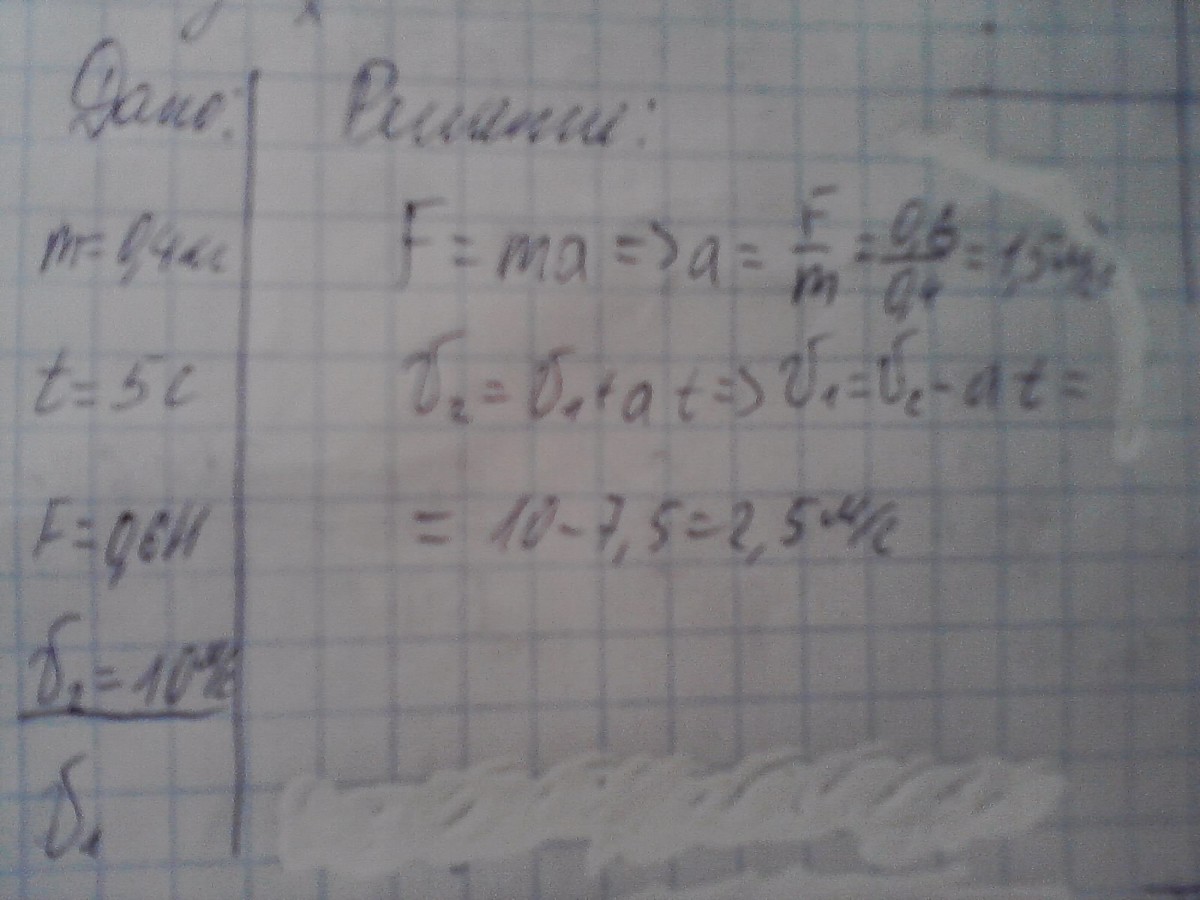 Дано:
m = 0,4 кг
t = 5 с
F = 0,6 Н
v₂ = 10 м/с
v₁
Решение:
F = ma => a = F/m = 0,6/0,4 = 1,5 м/с
v₂ = v₁ + at => v₁ = v₂ - at =
= 10 - 7,5 = 2,5 м/с